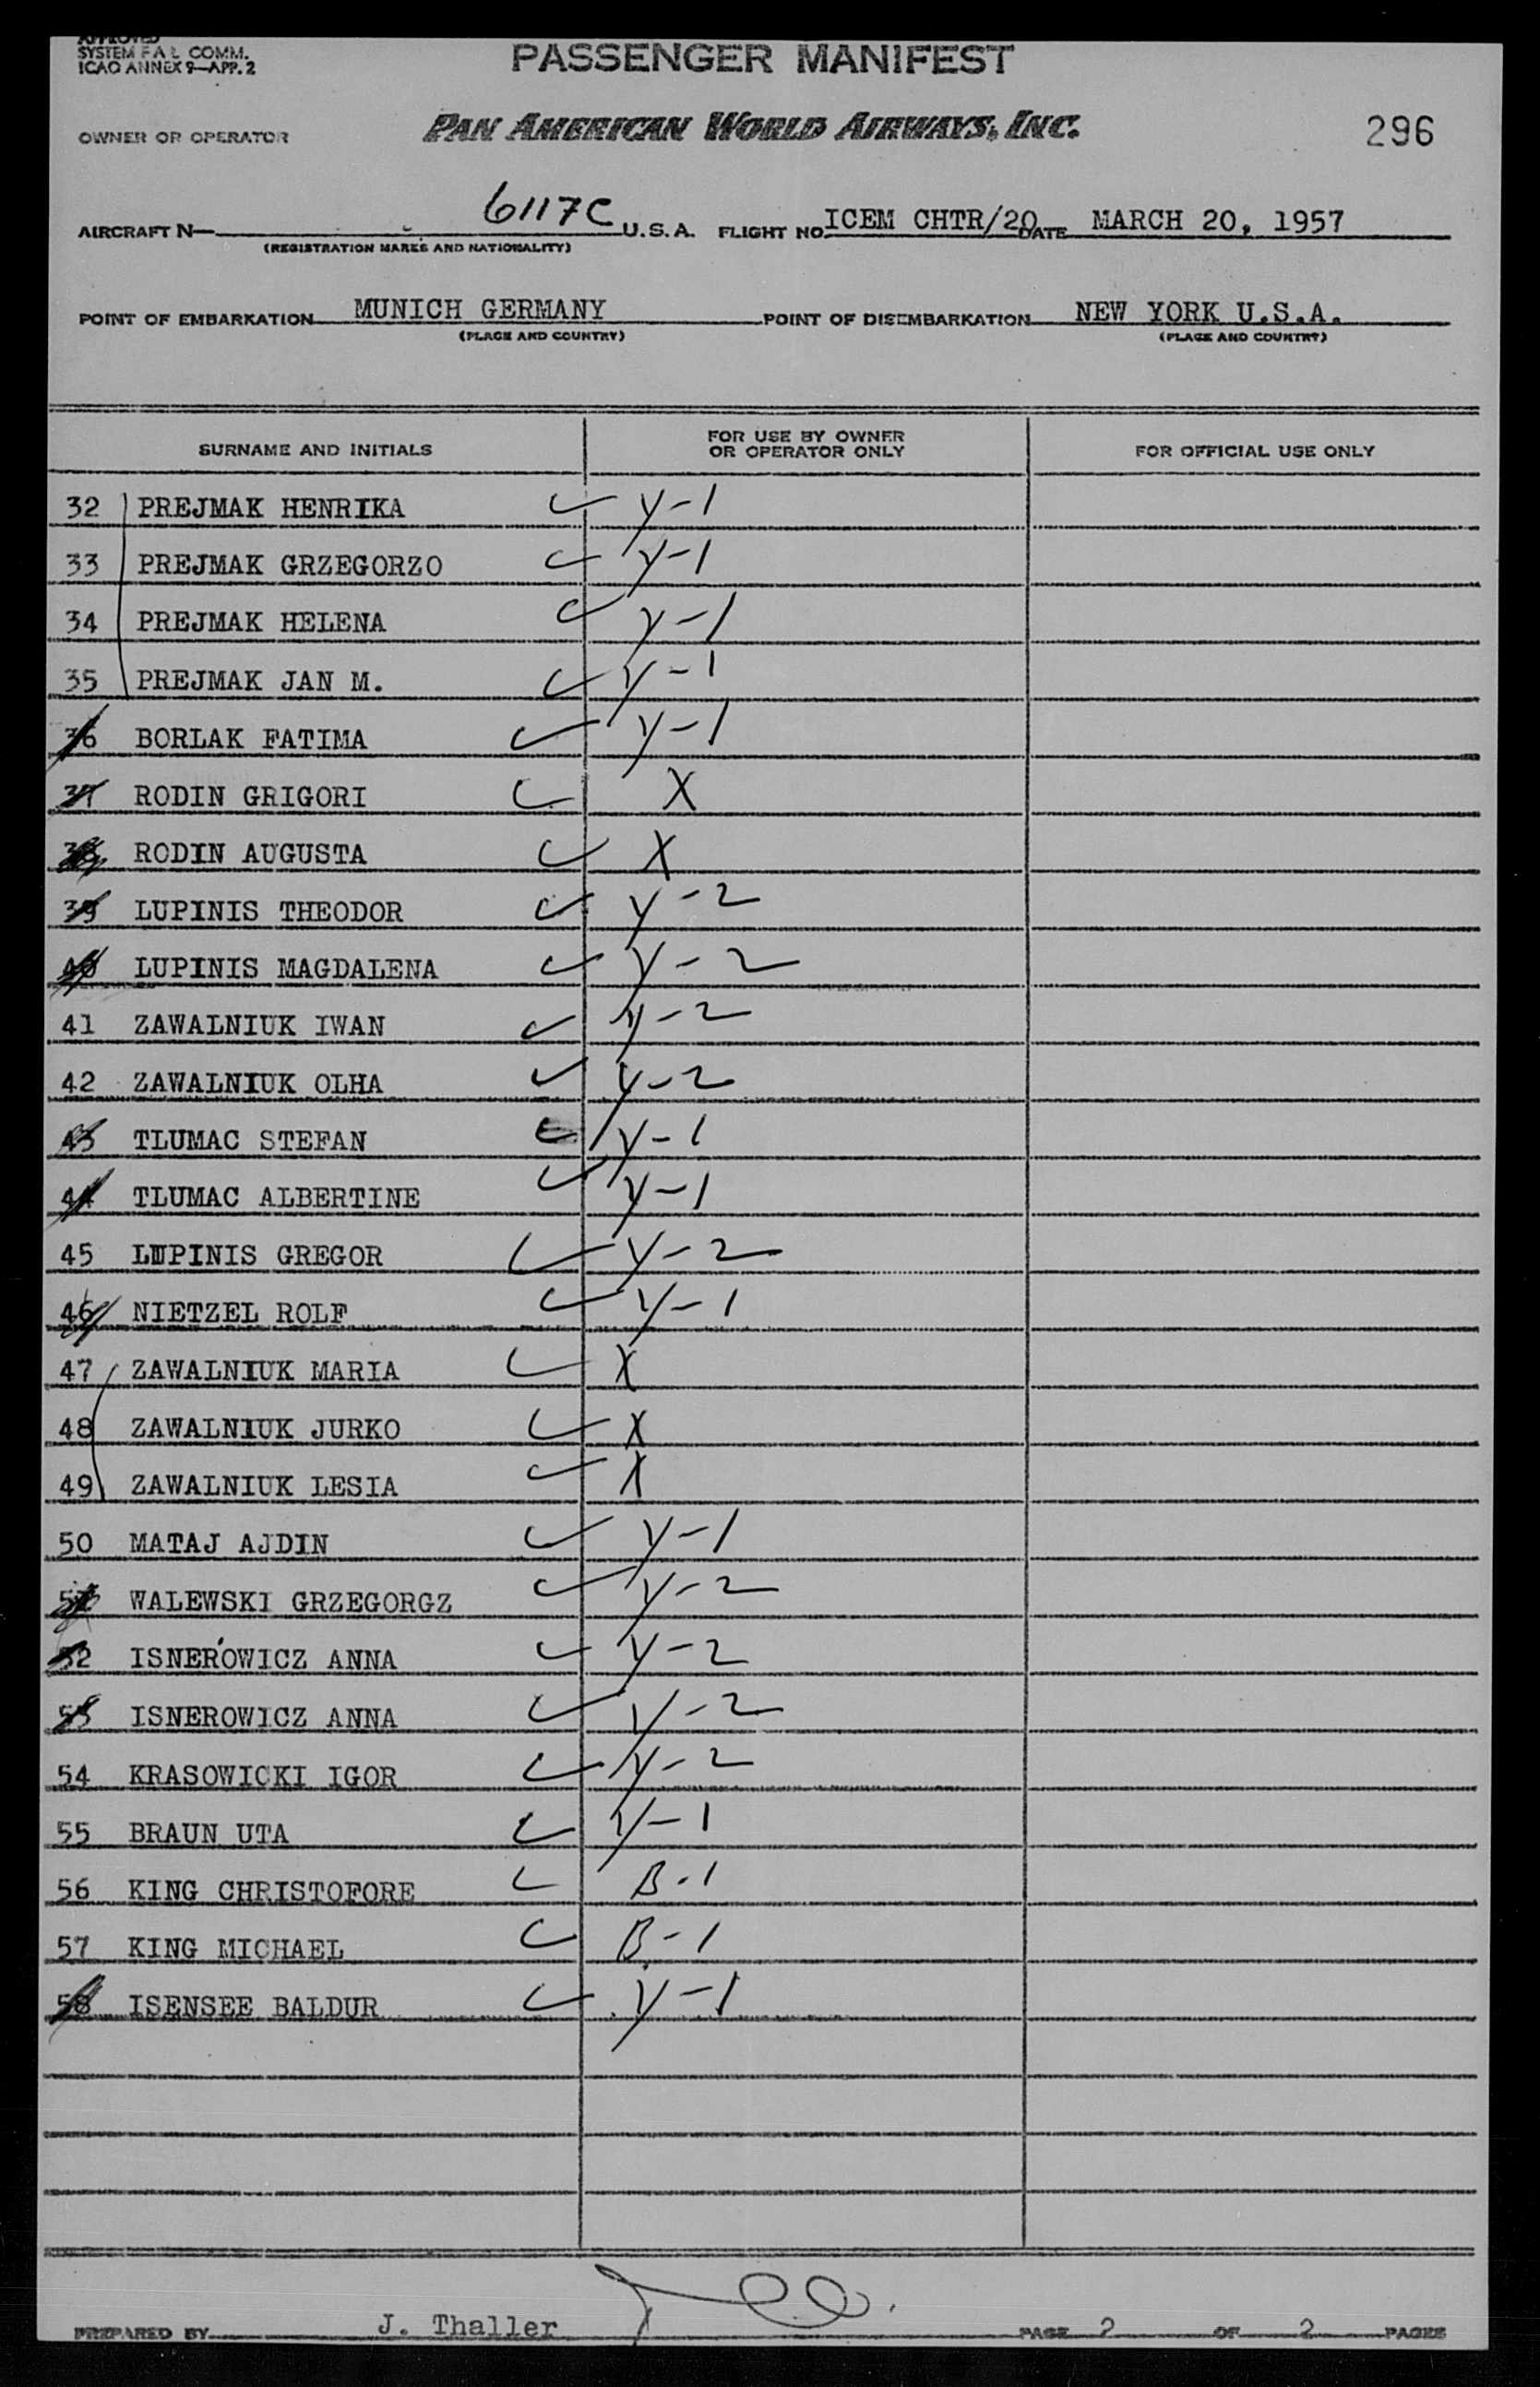 APPROVED
SYSTEM F A L COMM.
ICAO ANNEX 9—APP. 2
PASSENGER MANIFEST
OWNER OR OPERATOR PAN AMERICAN WORLD AIRWAYS, INC. 296
AIRCRAFT N— 6117C U.S.A. FLIGHT NO. ICEM CHTR/20 DATE MARCH 20, 1957
(REGISTRATION MARKS AND NATIONALITY)
POINT OF EMBARKATION MUNICH GERMANY POINT OF DISEMBARKATION NEW YORK U.S.A.
(PLACE AND COUNTRY) (PLACE AND COUNTRY)
SURNAME AND INITIALS FOR USE BY OWNER OR OPERATOR ONLY FOR OFFICIAL USE ONLY
32 PREJMAK HENRIKA Y-1
33 PREJMAK GRZEGORZO Y-1
34 PREJMAK HELENA Y-1
35 PREJMAK JAN M. Y-1
36 BORLAK FATIMA Y-1
37 RODIN GRIGORI X
38 RODIN AUGUSTA X
39 LUPINIS THEODOR Y-2
40 LUPINIS MAGDALENA Y-2
41 ZAWALNIUK IWAN Y-2
42 ZAWALNIUK OLHA Y-2
43 TLUMAC STEFAN Y-1
44 TLUMAC ALBERTINE Y-1
45 LUPINIS GREGOR Y-2
46 NIETZEL ROLF Y-1
47 ZAWALNIUK MARIA X
48 ZAWALNIUK JURKO X
49 ZAWALNIUK LESIA X
50 MATAJ AJDIN Y-1
51 WALEWSKI GRZEGORGZ Y-2
52 ISNEROWICZ ANNA Y-2
53 ISNEROWICZ ANNA Y-2
54 KRASOWICKI IGOR Y-2
55 BRAUN UTA Y-1
56 KING CHRISTOFORE B-1
57 KING MICHAEL B-1
58 ISENSEE BALDUR Y-1
PREPARED BY J. Thaller PAGE 2 OF 2 PAGES